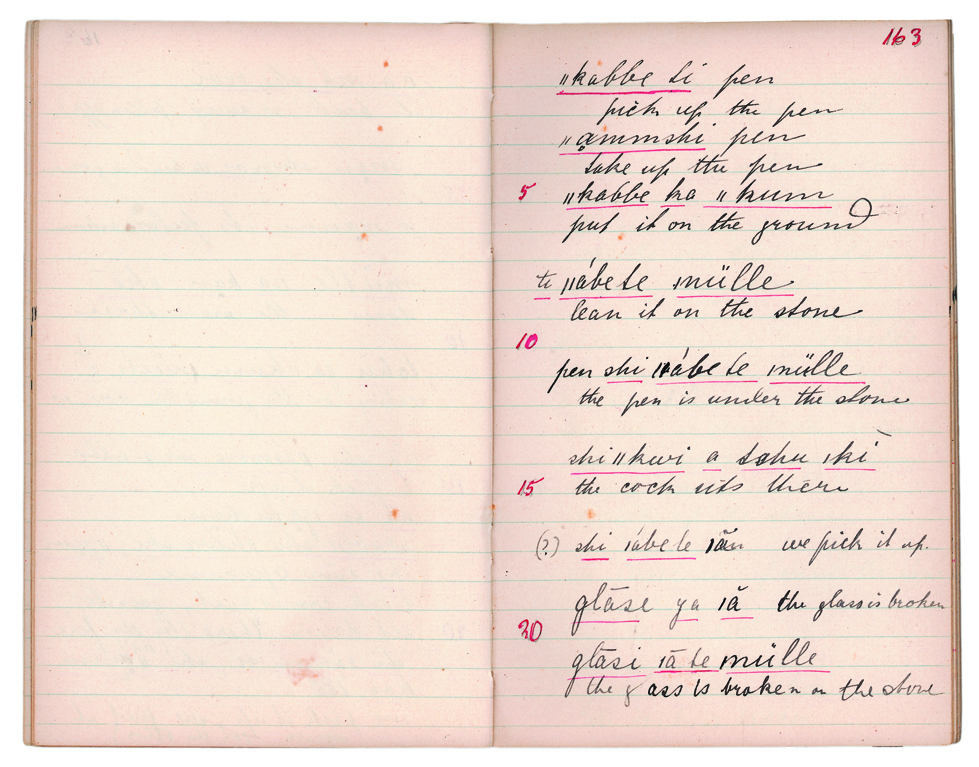 163
ǁkabbe ti pen
pick up the pen
ǁạmmshi pen
take up the pen
5 ǁkabbe ka ǁkum
put it on the ground
te ǁábete ǀmülle
lean it on the stone
10
pen shi ǁábete ǀmülle
the pen is under the stone
shi ǁkwi a tschu ǀkī
15 the cock sits there
(?) shi ǀábete ǀān we pick it up.
glāse ya ǀā the glass is broken
20
glāsi ǀā te ǀmülle
the glass is broken on the stone